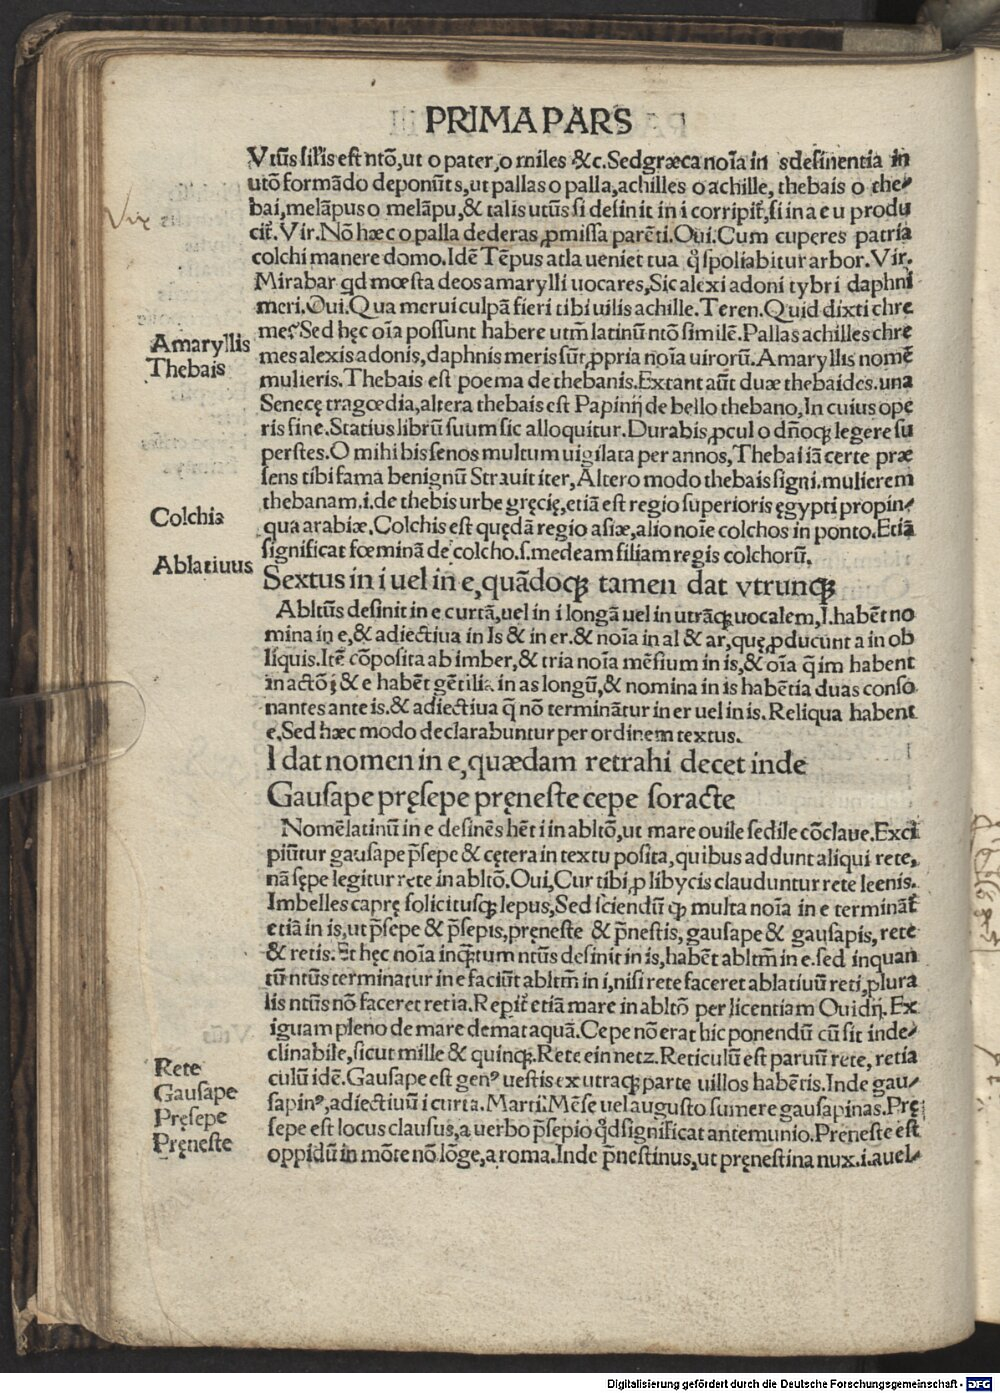 PRIMA PARS
Vtūs siľis est ntō,ut o pater,o miles &c.Sed græca noīa in s desinentia in
utō formādo deponūt s,ut pallas o palla,achilles o achille, thebais o the⸗
bai,melāpus o melāpu,& talis utūs si desinit in i corripiť,si in a e u produ
Vir
ciť.Vir.Nō hæc o palla dederas ꝓmissa parēti.Oui.Cum cuperes patria
colchi manere domo.Idē Tēpus atla ueniet tua q̊ spoliabitur arbor.Vir.
Mirabar qd mœsta deos amarylli uocares,Sic alexi adoni tybri daphni
meri.Oui.Qua merui culpā fieri tibi uilis achille.Teren.Quid dixti chre
me?Sed hęc oīa possunt habere utm̄ latinū ntō similē.Pallas achilles chre
Amaryllis
mes alexis adonis,daphnis meris sūt ꝓpria noīa uirorū.Amaryllis nomē
Thebais
mulieris.Thebais est poema de thebanis.Extant aūt duæ thebaides.una
Senecę tragœdia,altera thebais est Papinij de bello thebano,In cuius ope
ris fine.Statius librū suum sic alloquitur.Durabis ꝓcul o dn̄oqꝫ legere su
perstes.O mihi bissenos multum uigilata per annos,Thebai iā certe præ
sens tibi fama benignū Strauit iter,Altero modo thebais signi.mulierem
thebanam.i.de thebis urbe gręcię,etiā est regio superioris ęgypti propin⸗
Colchis
qua arabiæ.Colchis est quędā regio asiæ,alio noīe colchos in ponto.Etiā
significat fœminā de colcho.s.medeam filiam regis colchorū.
Ablatiuus
Sextus in i uel in e,quādoqꝫ tamen dat vtrunqꝫ
Abltūs desinit in e curtā,uel in i longā uel in utrāqꝫ uocalem,I.habēt no
mina in e,& adiectiua in Is & in er.& noīa in al & ar,quę ꝓducunt a in ob
liquis.Itē cōposita ab imber,& tria noīa mēsium in is,& oīa q̄ im habent
in actō;& e habēt gētilia in as longū,& nomina in is habētia duas conso
nantes ante is.& adiectiua q̄ nō terminātur in er uel in is.Reliqua habent
e.Sed hæc modo declarabuntur per ordinem textus.
I dat nomen in e,quædam retrahi decet inde
Gausape pręsepe pręneste cepe soracte
Nomē latinū in e desinēs hēt i in abltō,ut mare ouile sedile cōclaue.Exci
piūtur gausape p̄sepe & cętera in textu posita,quibus addunt aliqui rete,
nā sępe legitur rete in abltō.Oui,Cur tibi ꝓ libycis clauduntur rete leenis.
Imbelles caprę solicitusqꝫ lepus,Sed sciendū qꝫ multa noīa in e termināť
etiā in is,ut p̄sepe & p̄sepis,pręneste & p̄nestis,gausape & gausapis,rete
& retis.Et hęc noīa inqꝫtum ntūs desinit in is,habēt abltm̄ in e.sed inquan
tū ntūs terminatur in e faciūt abltm̄ in i,nisi rete faceret ablatiuū reti,plura
lis ntūs nō faceret retia.Repiť etiā mare in abltō per licentiam Ouidij.Ex
iguam pleno de mare demat aquā.Cepe nō erat hic ponendū cū sit inde⸗
clinabile,sicut mille & quinqꝫ.Rete ein netz.Reticulū est paruū rete,retia
Rete
culū idē.Gausape est genꝰ uestis ex utraqꝫ parte uillos habētis.Inde gau⸗
Gausape
sapinꝰ,adiectiuū i curta.Marti.Mēse uel augusto sumere gausapinas.Prę
Pręsepe
sepe est locus clausus,a uerbo p̄sepio q̊d significat antemunio.Preneste est
Pręneste
oppidū in mōte nō lōge,a roma.Inde p̄nestinus,ut pręnestina nux.i.auel⸗
Digitalisierung gefördert durch die Deutsche Forschungsgemeinschaft - DFG